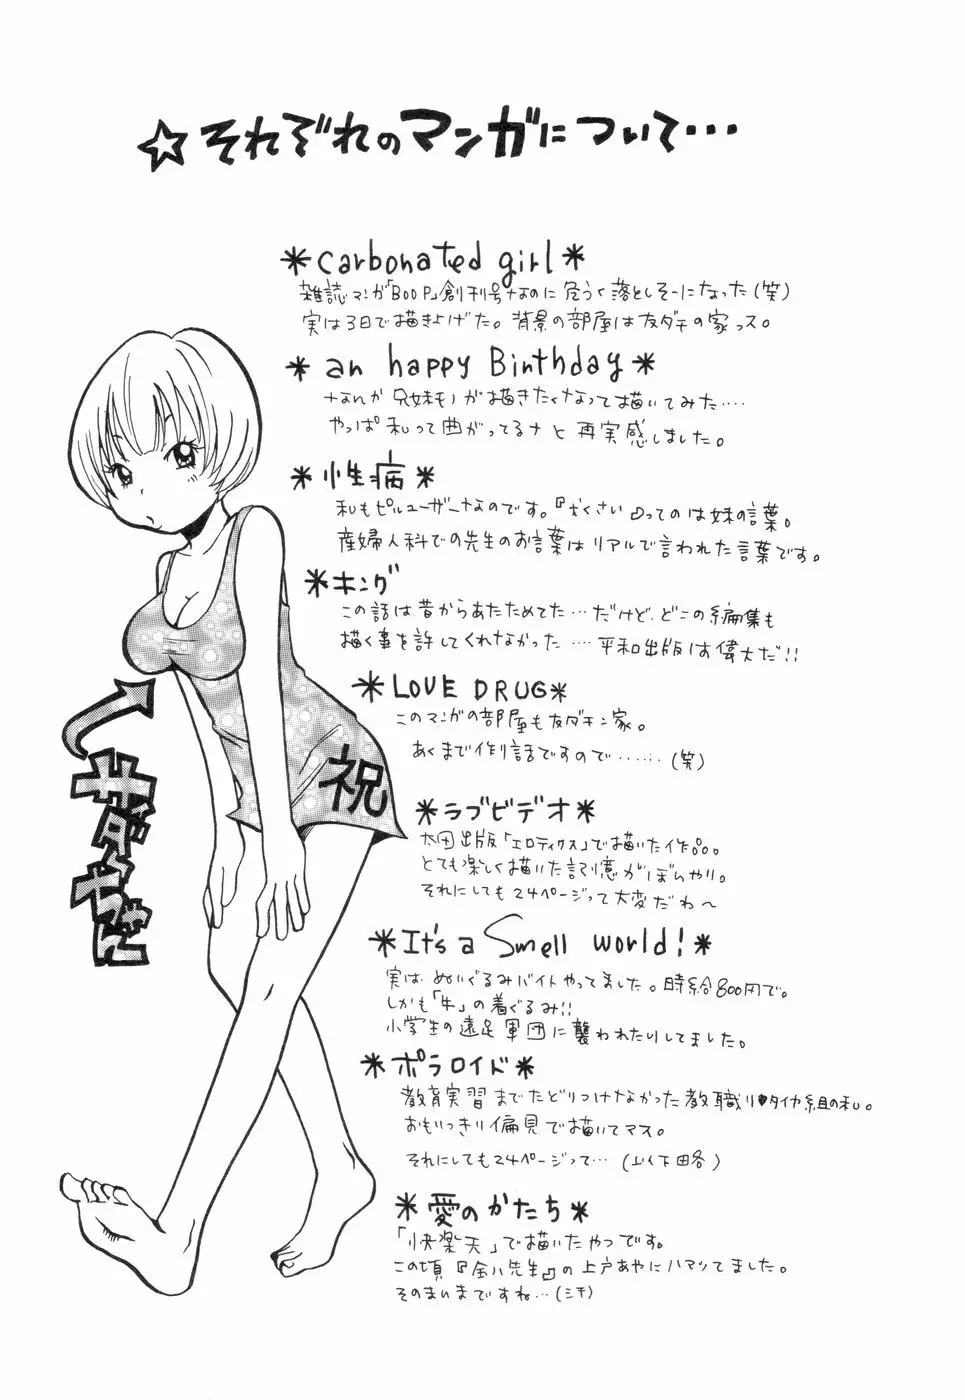 ☆それぞれのマンガについて・・・
*carbonated girl*
雑誌マンガ「BOOP」創刊号なのに危うく落としそーになった(笑)
実は3日で描きよげた。背景の部屋は友ダチの家っス。
*an happy Birthday*
なんか兄妹モノが描きたくなって描いてみた‥‥
やっぱ私って曲がってるナと再実感しました。
*性病*
私もピルユーザーなのです。『くさい』ってのは妹の言葉。
産婦人科での先生のお言葉はリアルで言われた言葉です。
*キング
この話は昔からあたためてた…だけど、どこの編集も
描く事を許してくれなかった‥‥平和出版は偉大だ!!
*LOVE DRUG*
このマンガの部屋も友ダチン家。
あくまで作り話ですので……(笑)
*ラブビデオ*
太田出版「エロティクス」で描いた作品。
とても楽しく描いた記憶がぼんやり。
それにしても24ページって大変だわ〜
*It's a Smell world!*
実はぬいぐるみバイトやってました。時給800円で。
しかも「牛」の着ぐるみ!!
小学生の遠足軍団に襲われたりしてました。
*ポラロイド*
教育実習までたどりつけなかった教職リタイヤ組の私。
おもいっきり偏見で描いてマス。
それにしても24ページって…(以下略)
*愛のかたち*
「快楽天」で描いたやつです。
この頃『金八先生』の上戸あやにハマってました。
そのまいまですね…(シモ)
祝
サダちゃん